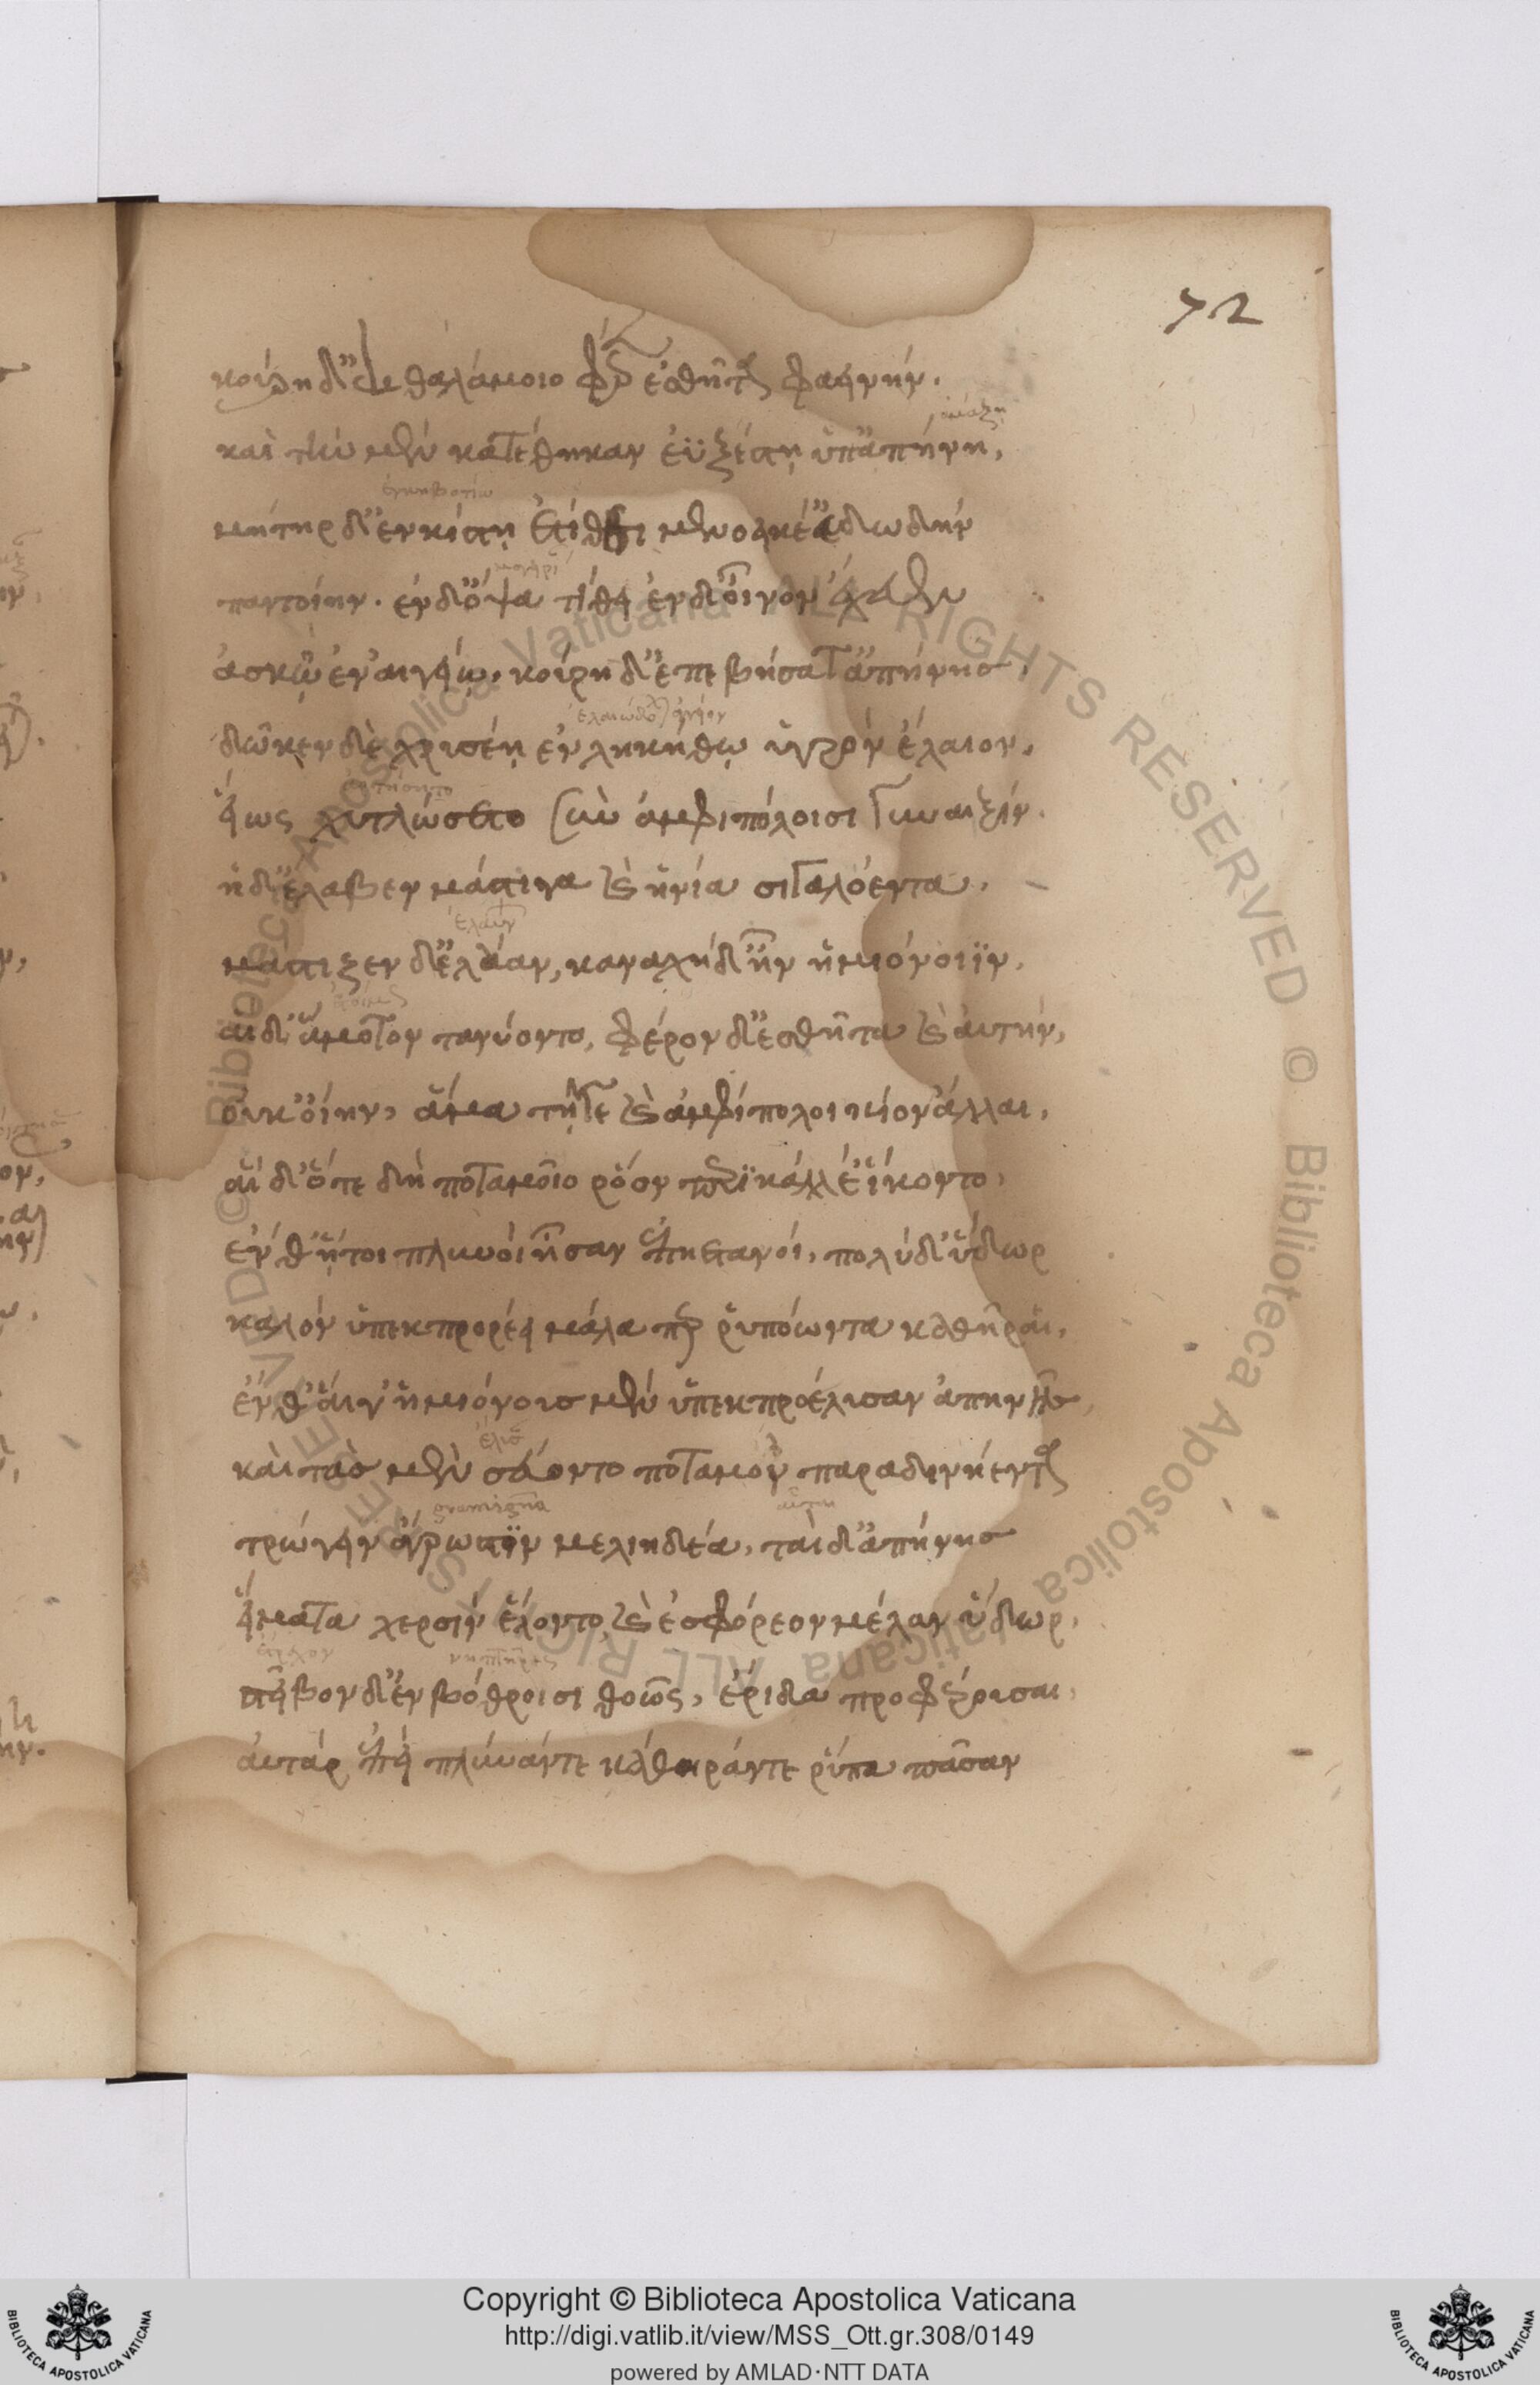 72
κούρη δ' ἐκ θαλάμοιο φέρεν ἐσθῆτα φαεινήν.
ἁμάξη
καὶ τὴν μὲν κατέθηκαν ἐϋξέστη ὑπ' ἀπήνη,
μήτηρ δ' ἐν κίστη ἐτίθει μενοεικέα ἐδωδὴν
παντοίην. ἐν δ' ὄψα τίθει ἐν δ' οἶνον ἔχευεν
ἀσκῷ ἐν αἰγείῳ, κούρη δ' ἐπεβήσατ' ἀπήνης,
δῶκεν δὲ χρυσέη ἐν ληκήθῳ ὑγρὸν ἔλαιον,
εἵως χυτλώσετο σὺν ἀμφιπόλοισι γυναιξίν.
ἡ δ' ἔλαβεν μάστιγα καὶ ἡνία σιγαλόεντα,
μάστιξεν δ' ἐλάαν, καναχὴ δ' ἦν ἡμιόνοιϊν,
αἱ δ' ἄμοτον τανύοντο, φέρον δ' ἐσθῆτα καὶ αὐτήν,
οὐκ οἴην, ἅμα τῆγε καὶ ἀμφίπολοι κίον ἄλλαι,
αἱ δ' ὅτε δὴ ποταμοῖο ῥόον περικαλλέ' ἵκοντο,
ἔνθ' ἤτοι πλυνοὶ ἦσαν ἐπηετανοί, πολὺ δ' ὕδωρ
καλὸν ὑπεκπρορέει μάλα περ ῥυπόωντα καθῆραι,
ἔνθ' αἵγ' ἡμιόνους μὲν ὑπεκπροέλυσαν ἀπήνης
καὶ τὰς μὲν σεύοντο ποταμὸν παραδινήεντα
τρώγειν ἄγρωστιν μελιηδέα, ταὶ δ' ἀπήνης
εἵματα χερσὶν ἕλοντο, καὶ ἐσφόρεον μέλαν ὕδωρ,
στεῖβον δ' ἐν βόθροισι θοῶς, ἔριδα προφέρουσαι,
αὐτὰρ ἐπεὶ πλῦνάν τε κάθηράν τε ῥύπα πᾶσαν
Copyright © Biblioteca Apostolica Vaticana
http://digi.vatlib.it/view/MSS_Ott.gr.308/0149
powered by AMLAD·NTT DATA